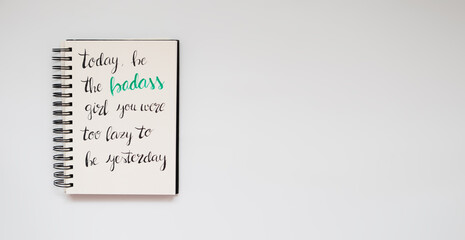 today, be
the badass
girl you were
too lazy to
be yesterday